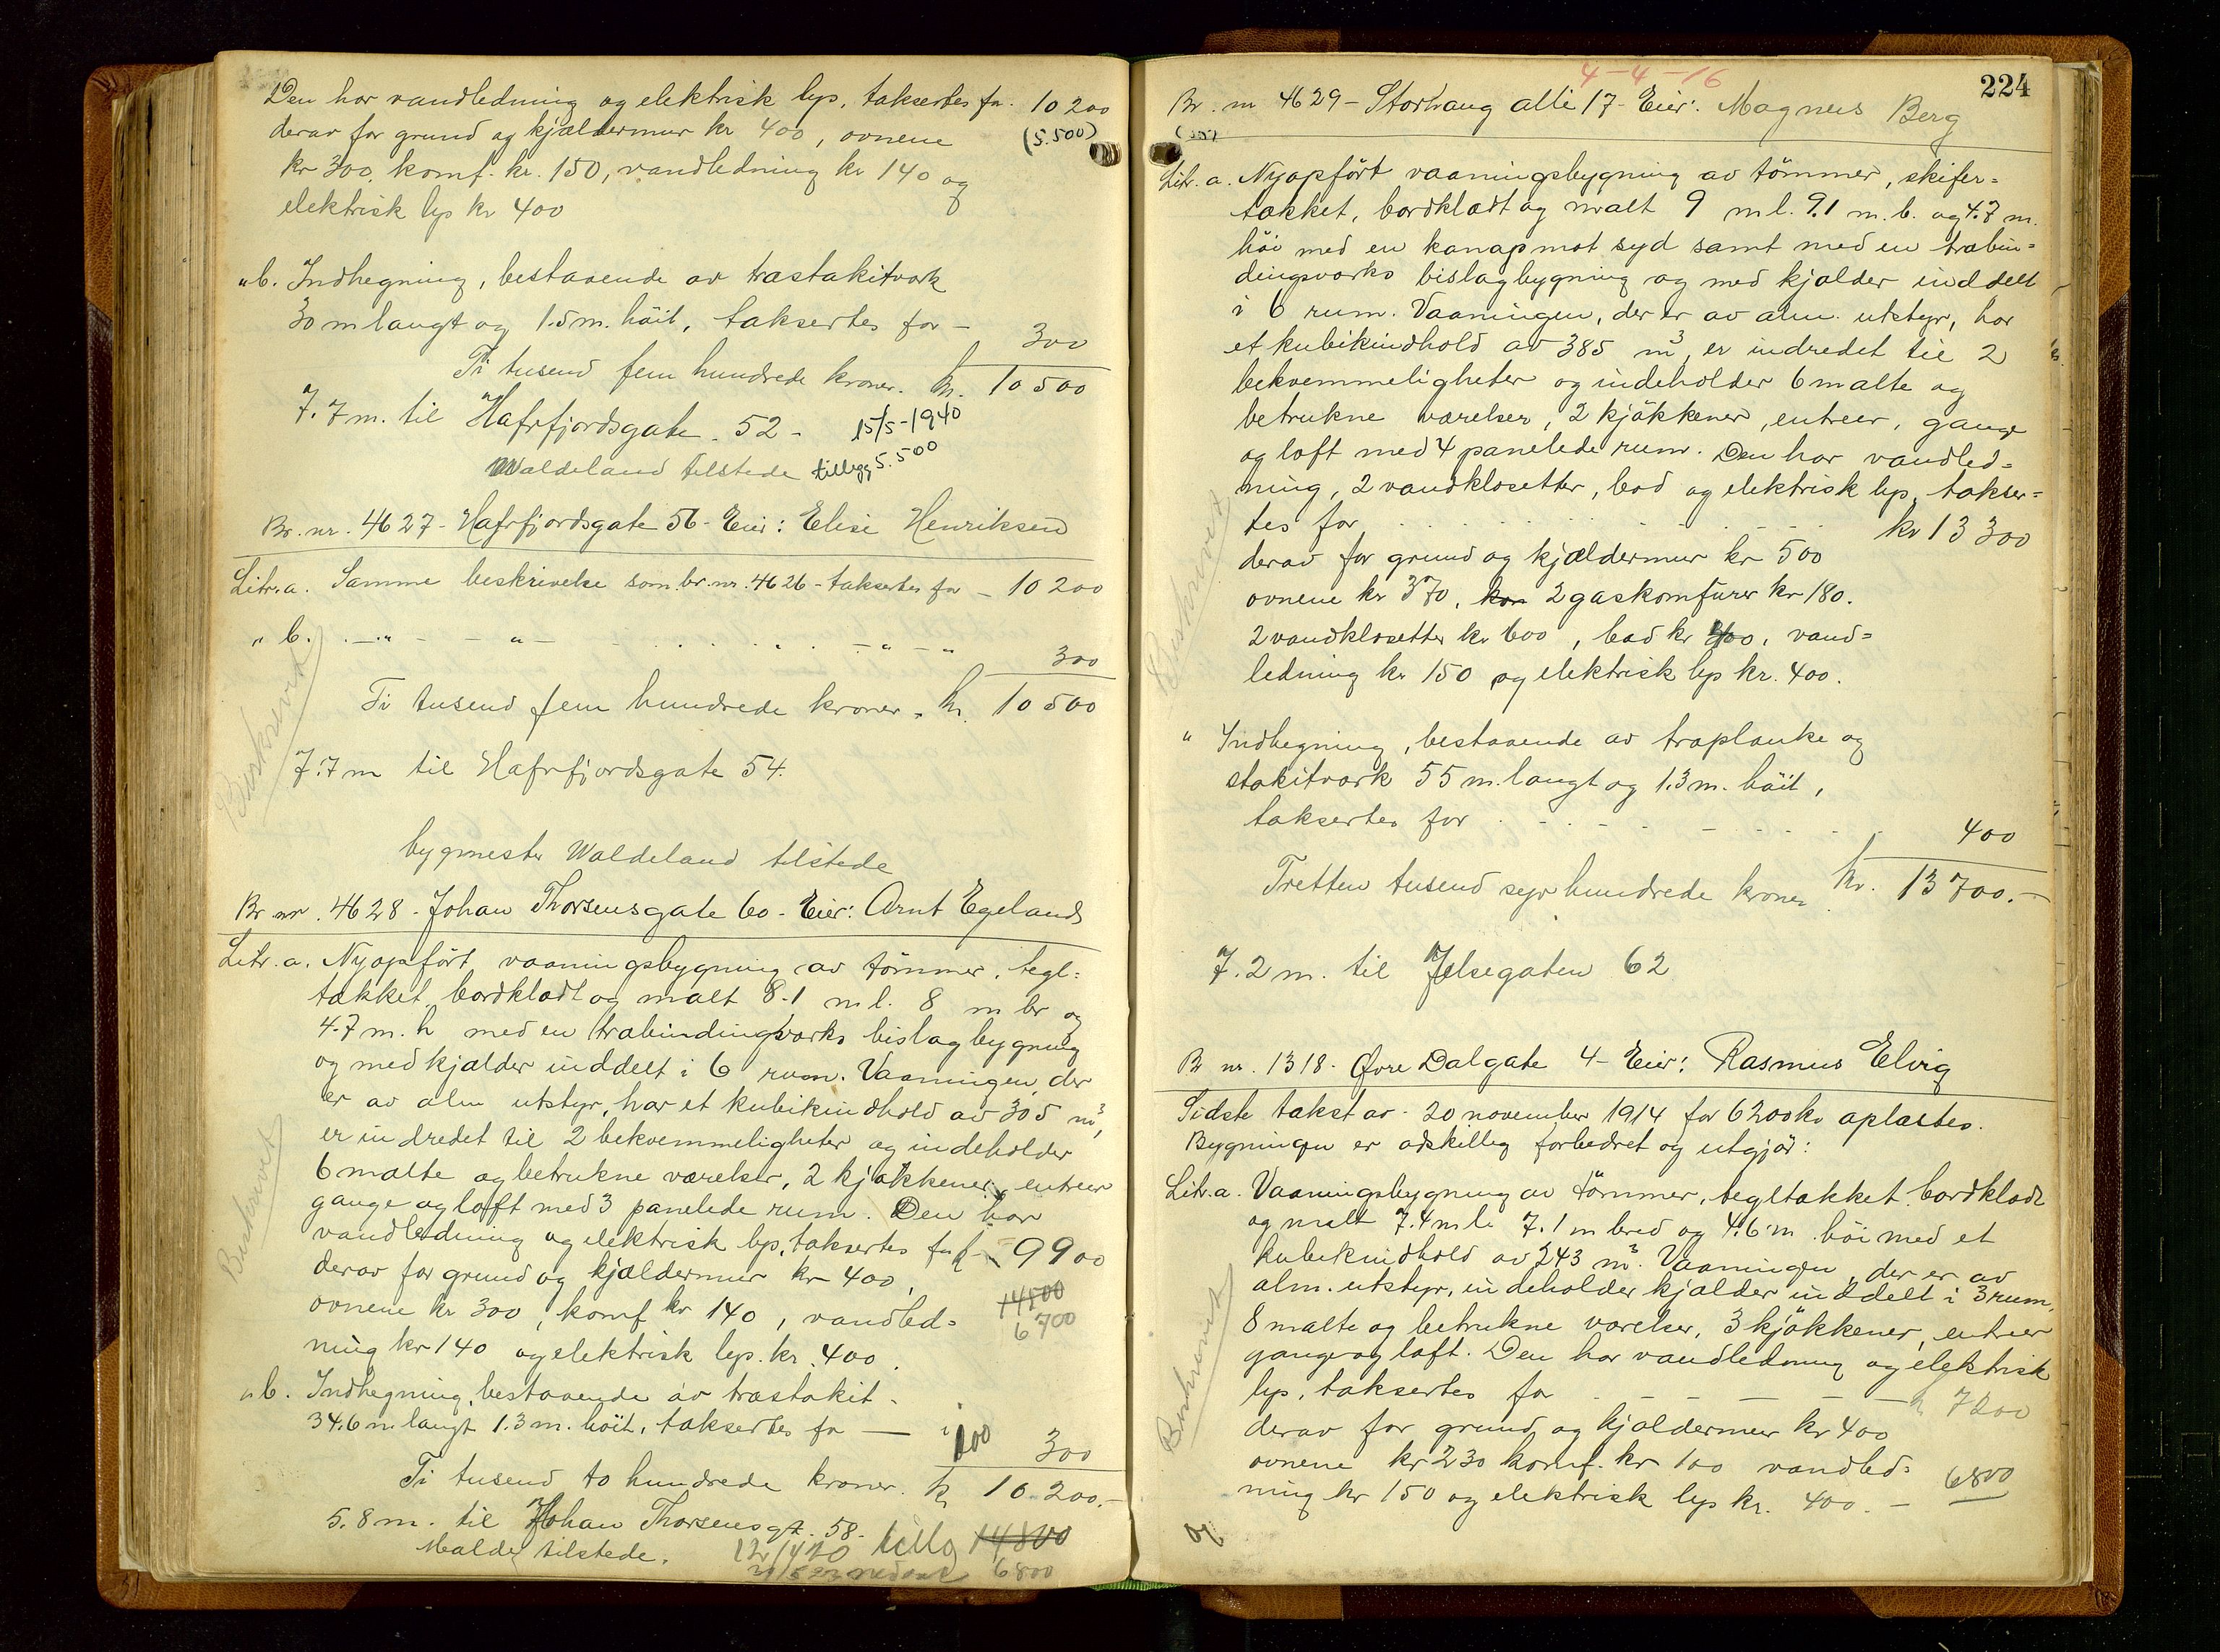 Den har vandledning og elektrisk lys, taksertes for 10 200
derav for grund og kjældermur kr 400, ovnene (5.500)
kr 300, komf. kr. 150, vandledning kr 140 og
elektrisk lys kr 400
" b. Indhegning, bestaaende av træstakitværk
30 m langt og 1.5 m. høit, taksertes for - 300
Ti tusend fem hundrede kroner. kr. 10 500
7.7 m. til Hafrfjordsgate 52 - 15/5-1940
Waldeland tilstede tillegg 5.500
Br. nr. 4627 - Hafrfjordsgate 56 - Eier: Elise Henriksen
Litr. a. Samme beskrivelse som br. nr. 4626 - taksertes for - 10 200
" b. - " - - " - - " - " 300
Beskrevet
Ti tusend fem hundrede kroner = kr. 10 500
7.7 m til Hafrfjordsgate 54.
bygmester Waldeland tilstede
Br nr. 4628 - Johan Thorsensgate 60 - Eier: Arnt Egeland
Litr. a. Nyopført vaaningsbygning av tømmer, tegl=
tækket, bordklædt og malt 8.1 m l. 8 m br og
4.7 m. h med en træbindingsværks bislagbygning
og med kjælder inddelt i 6 rum. Vaaningen, der
er av alm utstyr, har et kubikindhold av 305 m³,
er indredet til 2 bekvemmeligheter og indeholder
6 malte og betrukne værelser, 2 kjøkkener, entreer
gange og loft med 3 panelede rum. Den har
vandledning og elektrisk lys, taksertes for kr 9900
derav for grund og kjældermur kr 400, 14500
ovnene kr 300, komf kr 140, vandled= 6700
ning kr 140 og elektrisk lys. kr. 400.
Beskrevet
" b. Indhegning, bestaaende av træstakit -
34.6 m langt 1.3 m. høit, taksertes for — 100 300
Ti tusend to hundrede kroner. kr 10 200.-
5.8 m. til Johan Thorsensgt. 58.
Malde tilstede. 12/1420 tillg 14800
6800
4-4-16
224
Br. nr 4629 - Storhaug alle 17 - Eier: Magnus Berg
Litr. a. Nyopført vaaningsbygning av tømmer, skifer=
tækket, bordklædt og malt 9 m l. 9.1 m. b. og 4.7 m.
høi med en kanap mot syd samt med en træbin=
dingsværks bislagbygning og med kjælder inddelt
i 6 rum. Vaaningen, der er av alm. utstyr, har
et kubikindhold av 385 m³, er indredet til 2
bekvemmeligheter og indeholder 6 malte og
betrukne værelser, 2 kjøkkener, entreer, gange
og loft med 4 panelede rum. Den har vandled=
ning, 2 vandklosetter, bad og elektrisk lys, takser=
tes for kr 13 300
derav for grund og kjældermur kr 500
ovnene kr 370, kom 2 gaskomfurer kr 180.
2 vandklosetter kr 600, bad kr 400, vand=
ledning kr 150 og elektrisk lys kr. 400.
Beskrevet
" Indhegning, bestaaende av træplanke og
stakitværk 55 m. langt og 1.3 m. høit,
taksertes for 400
Tretten tusend syv hundrede kroner kr. 13 700.-
7.2 m. til Jelsegaten 62
Br nr. 1318. Øvre Dalgate 4 - Eier: Rasmus Elvig
Sidste takst av 20 november 1914 for 6200 kr oplæstes.
Bygningen er adskillig forbedret og utgjør:
Litr. a. Vaaningsbygning av tømmer, tegltækket bordklædt
og malt 7.4 m l. 7.1 m bred og 4.6 m høi med et
kubikindhold av 243 m³. Vaaningen, der er av
alm. utstyr, indeholder kjælder inddelt i 3 rum,
8 malte og betrukne værelser, 3 kjøkkener, entreer
gange og loft. Den har vandledning og elektrisk
lys, taksertes for - - - - kr 7200
derav for grund og kjældermur kr 400
ovnene kr 230 komf. kr 100 vandled= 6800
ning kr 150 og elektrisk lys kr. 400. -
Beskrevet
og